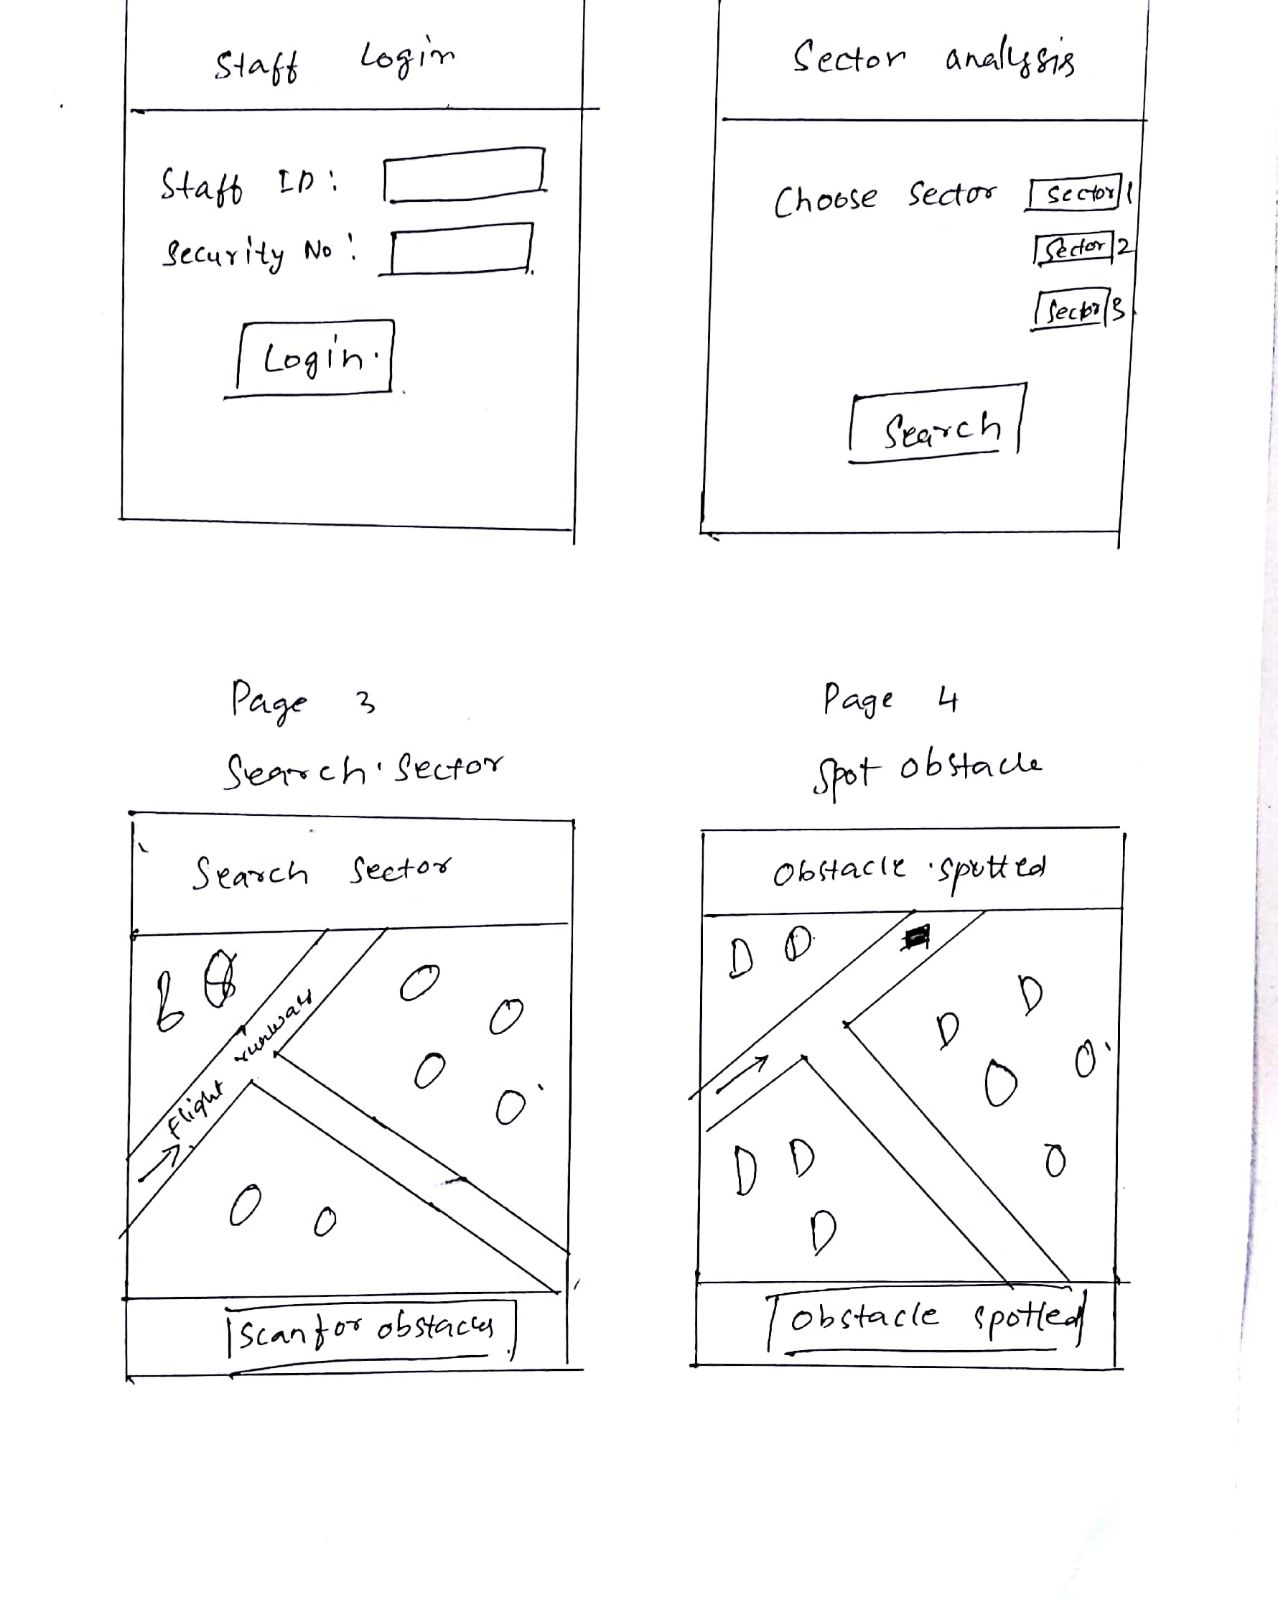 Staff Login
Staff ID:
Security No:
Login
Sector analysis
Choose Sector Sector 1
Sector 2
Sector 3
Search
Page 3
Search Sector
Search Sector
Flight runway
Scan for obstacles
Page 4
Spot obstacle
Obstacle spotted
Obstacle spotted